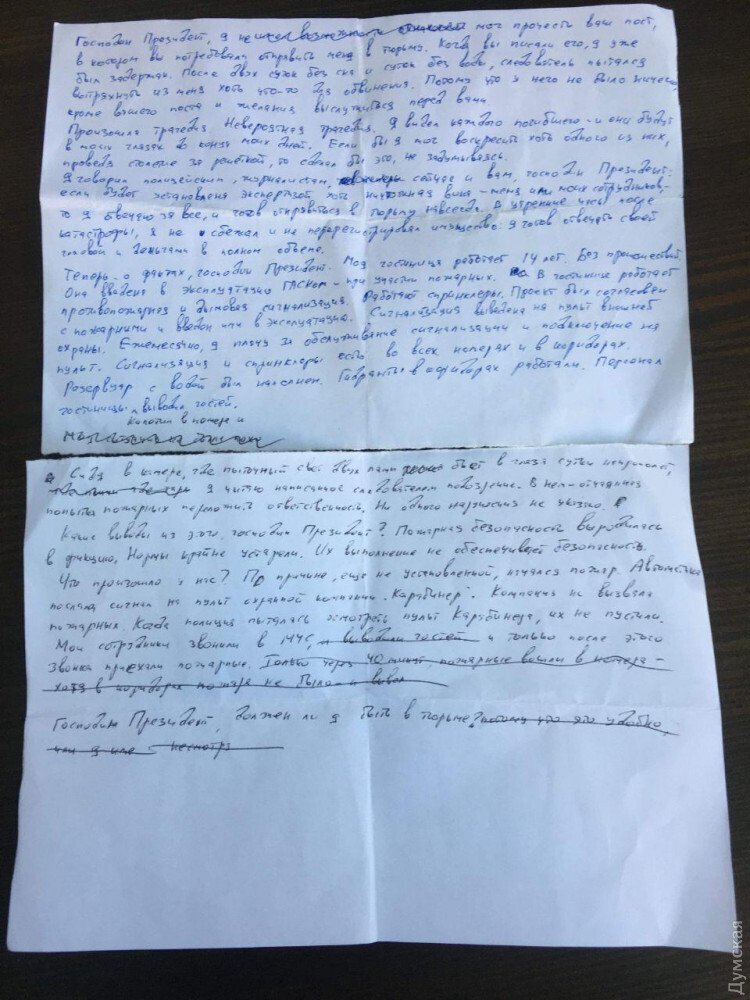 Господин Президент, я не имел возможности мог прочесть ваш пост,
в котором вы потребовали отправить меня в тюрьму. Когда вы писали его, я уже
был задержан. После двух суток без сна и суток без воды, следователь пытался
вытряхнуть из меня хоть что-то для обвинения. Потому что у него не было ничего,
кроме вашего поста и желания выслужиться перед вами
Произошла трагедия. Невероятная трагедия. Я видел каждого погибшего - и они будут
в моих глазах до конца моих дней. Если бы я мог воскресить хоть одного из них,
проведя столетие за решеткой, то сделал бы это, не задумываясь.
Я говорил полицейским, журналистам, сейчас и вам, господин Президент:
если будет установлена экспертизой хоть ничтожная вина - меня или моих сотрудников -
то я отвечаю за все, и готов отправиться в тюрьму навсегда. В утренние часы после
катастрофы, я не сбежал и не перерегистрировал имущество. Я готов отвечать своей
головой и деньгами в полном объеме.
Теперь - о фактах, господин Президент. Моя гостиница работает 14 лет. Без происшествий.
Она введена в эксплуатацию ГАСКом - при участии пожарных. В гостинице работает
противопожарная и дымовая сигнализация. Работают спринклеры. Проект был согласован
с пожарными и введен ими в эксплуатацию. Сигнализация выведена на пульт внешней
охраны. Ежемесячно, я плачу за обслуживание сигнализации и подключение на
пульт. Сигнализация и спринклеры есть во всех номерах и в коридорах.
Резервуар с водой был наполнен. Гидранты в коридорах работали. Персонал
гостиницы выводил гостей.
Колотил в номера и
Сидя в камере, где пыточный свет двух ламп бьет в глаза сутки напролет,
я читаю написанное следователем подозрение. В нем - отчаянная
попытка пожарных переложить ответственность. Ни одного нарушения не указано.
Какие выводы из этого, господин Президент? Пожарная безопасность выродилась
в фикцию. Нормы крайне устарели. Их выполнение не обеспечивает безопасность.
Что произошло у нас? По причине, еще не установленной, начался пожар. Автоматика
послала сигнал на пульт охранной компании "Карабинер". Компания не вызвала
пожарных. Когда полиция пыталась осмотреть пульт Карабинера, их не пустили.
Мои сотрудники звонили в МЧС, и выводили гостей и только после этого
звонка приехали пожарные. Только через 40 минут пожарные вошли в номера -
хотя в коридорах пожара не было - и вывел
Господин Президент, должен ли я быть в тюрьме? потому что это удобно,
или я или несмотря
Думская